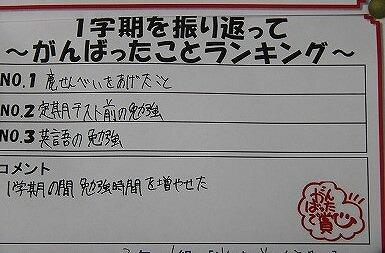 1学期を振り返って
～がんばったことランキング～
NO.1 鹿せんべいをあげたこと
NO.2 定期テスト前の勉強
NO.3 英語の勉強
コメント
1学期の間 勉強時間を増やせた
がんばったで賞